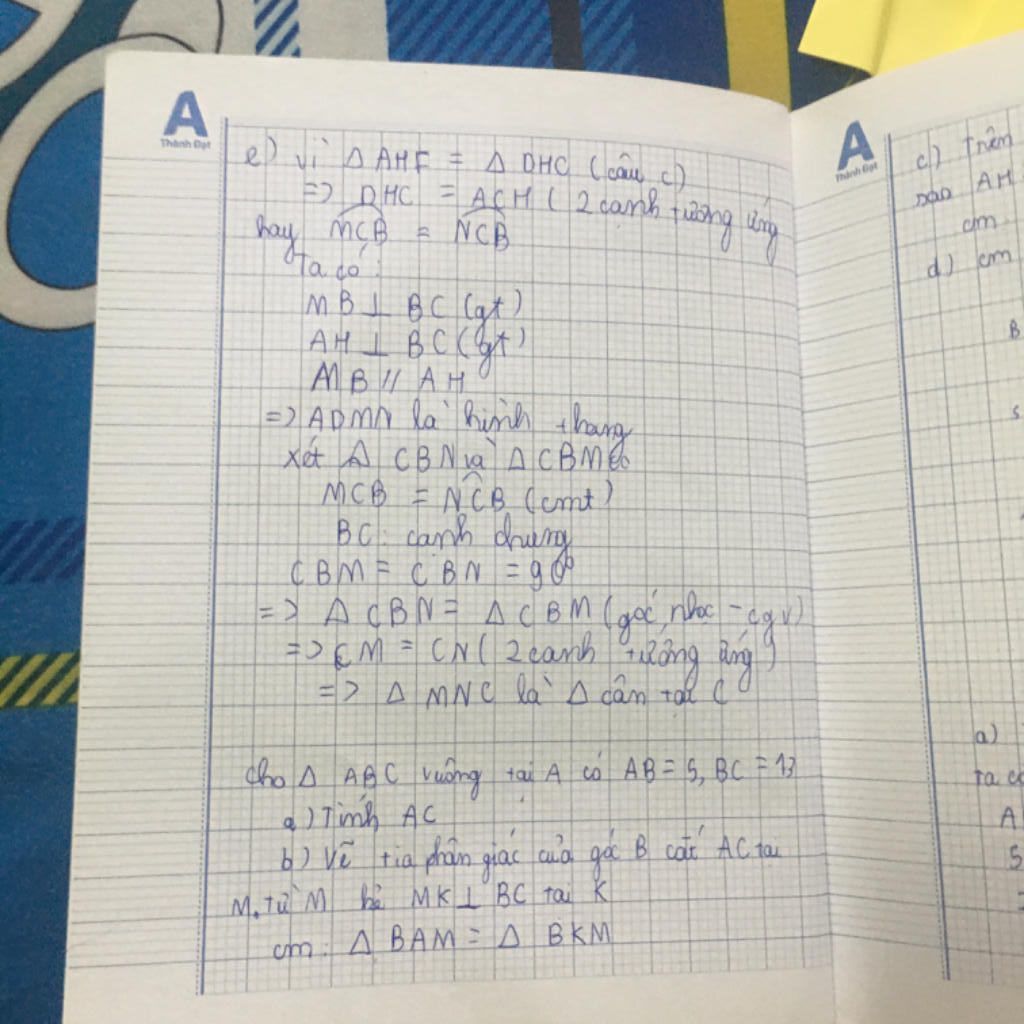 A
Thành Đạt
e) Vì Δ AHF = Δ DHC (câu c)
=> DHC = ACH ( 2 canh tương ứng
hay MCB = NCB
Ta có:
MB ⊥ BC (gt)
AH ⊥ BC (gt)
MB // AH
=> ADMN là hình thang
xét Δ CBN và Δ CBM có
MCB = NCB (cmt)
BC: canh chung
CBM = CBN = 90°
=> Δ CBN = Δ CBM (góc nhọc - cgv)
=> CM = CN ( 2 canh tương ứng)
=> Δ MNC là Δ cân tại C
Cho Δ ABC vuông tại A có AB = 5, BC = 13
a) Tính AC
b) Vẽ tia phân giác của góc B cắt AC tại
M. từ M kẻ MK ⊥ BC tại K
cm: Δ BAM = Δ BKM
A
Thành Đạt
c) Trên
sao AH
cm
d) cm
B
S
a)
ta có
A
5